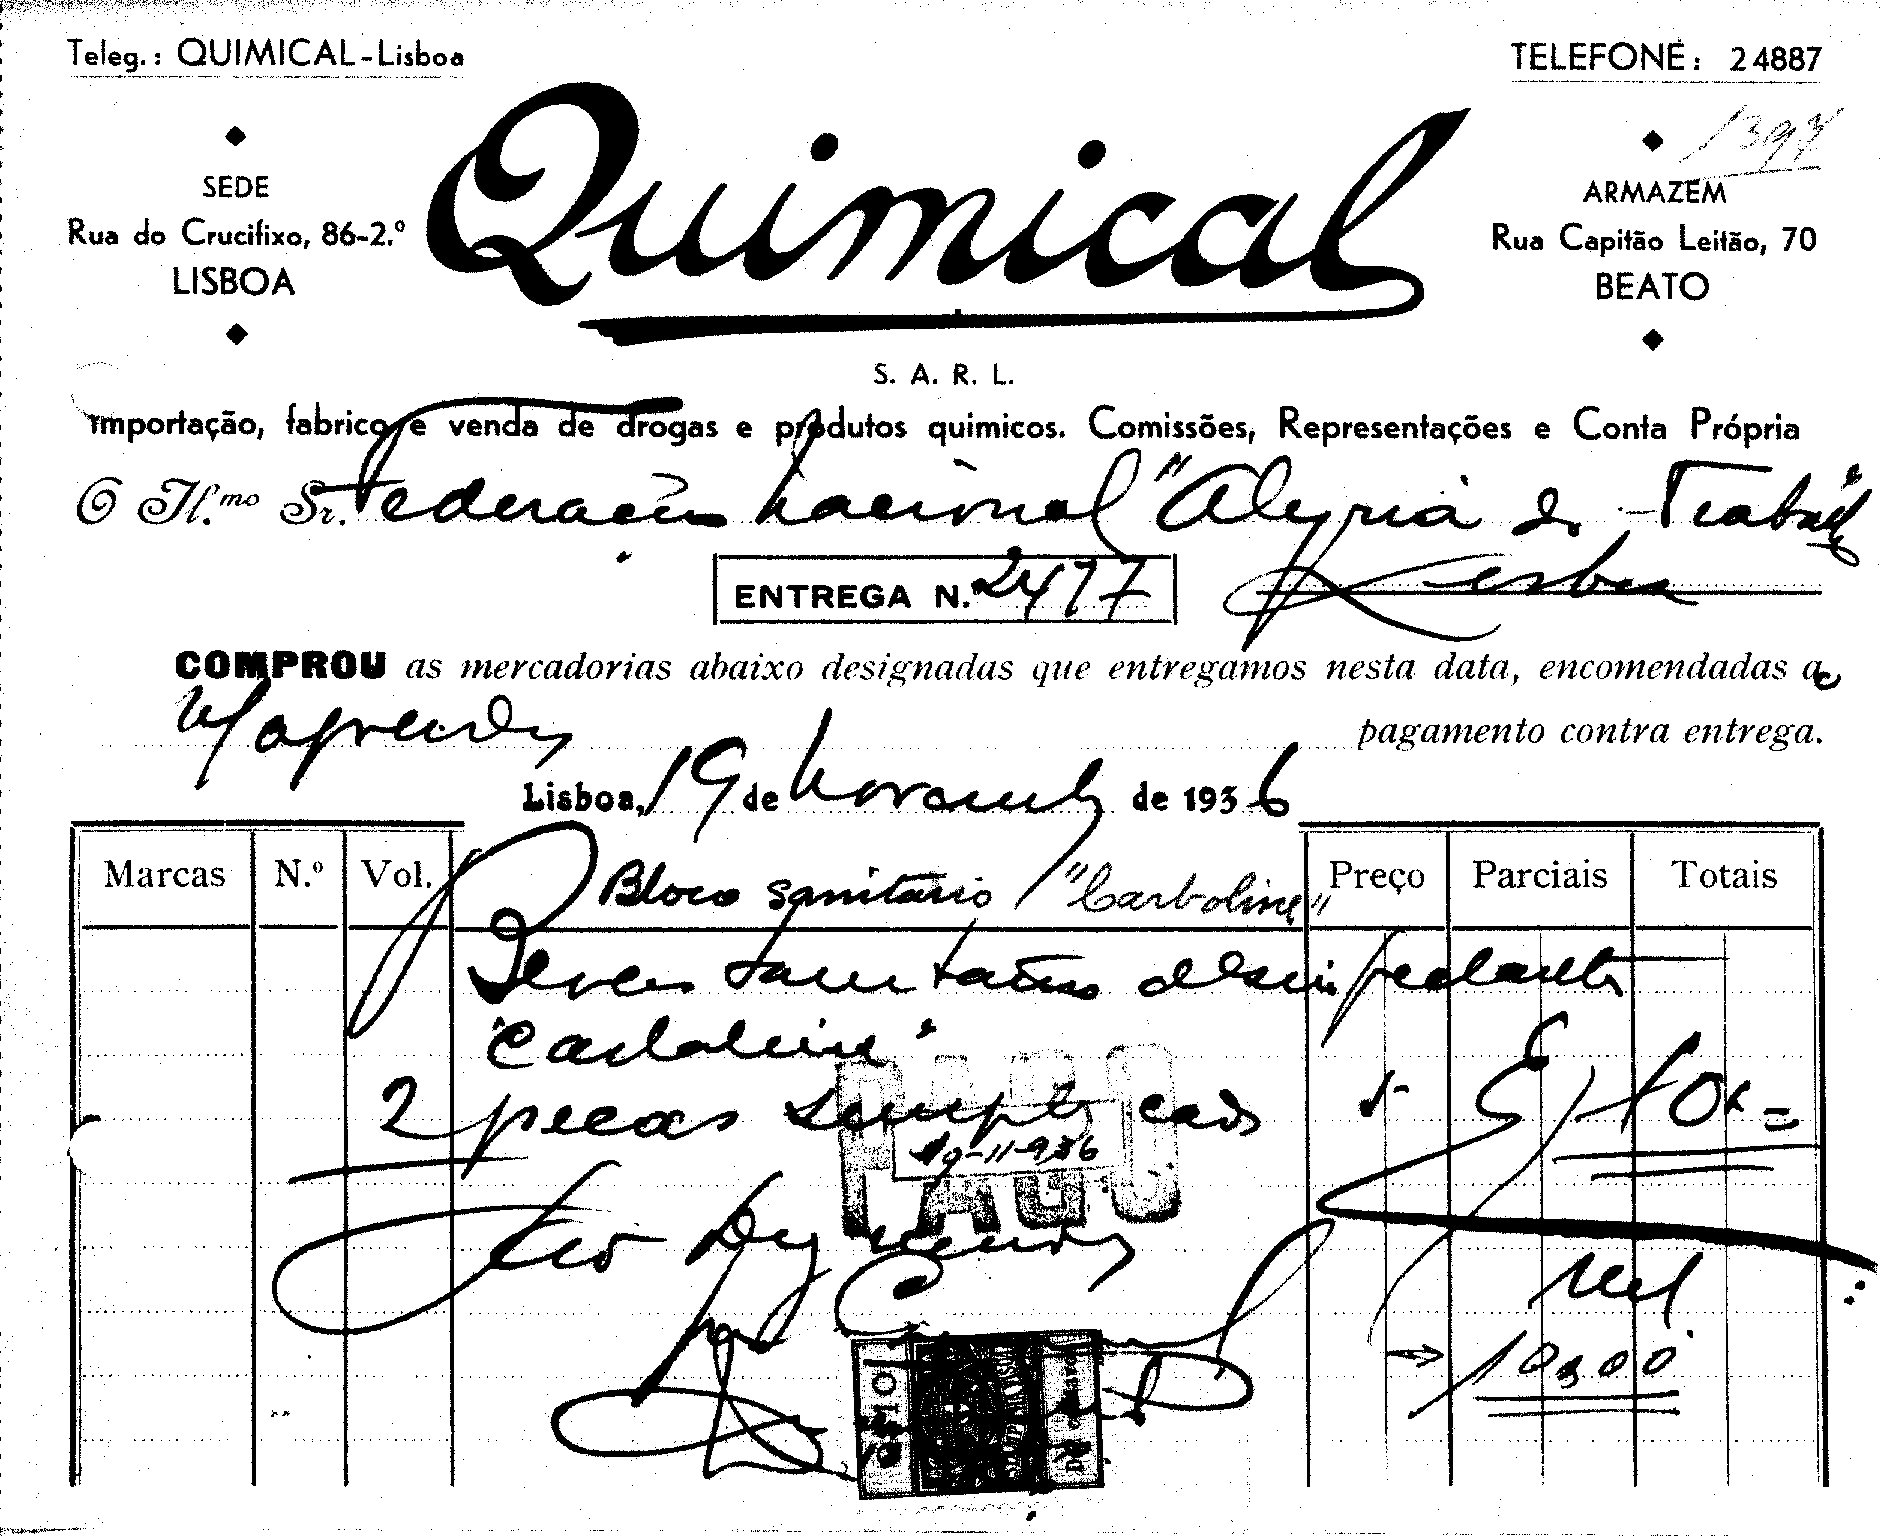 Teleg.: QUIMICAL-Lisboa
TELEFONE: 24887
1397
SEDE
Rua do Crucifixo, 86-2.º
LISBOA
Quimical
ARMAZEM
Rua Capitão Leitão, 70
BEATO
S. A. R. L.
Importação, fabrico e venda de drogas e produtos quimicos. Comissões, Representações e Conta Própria
O Il.mo Sr. Federação Nacional "Alegria do Trabalho"
ENTREGA N. 2477
Lisboa
COMPROU as mercadorias abaixo designadas que entregamos nesta data, encomendadas a
pagamento contra entrega.
Lisboa, 19 de Novembro de 1936
Marcas N.º Vol. Bloco sanitario "Carboline" Preço Parciais Totais
desinfectante
"Carboline"
2 peças cada 5- 10x=
PAGO
19-11-936
10$00